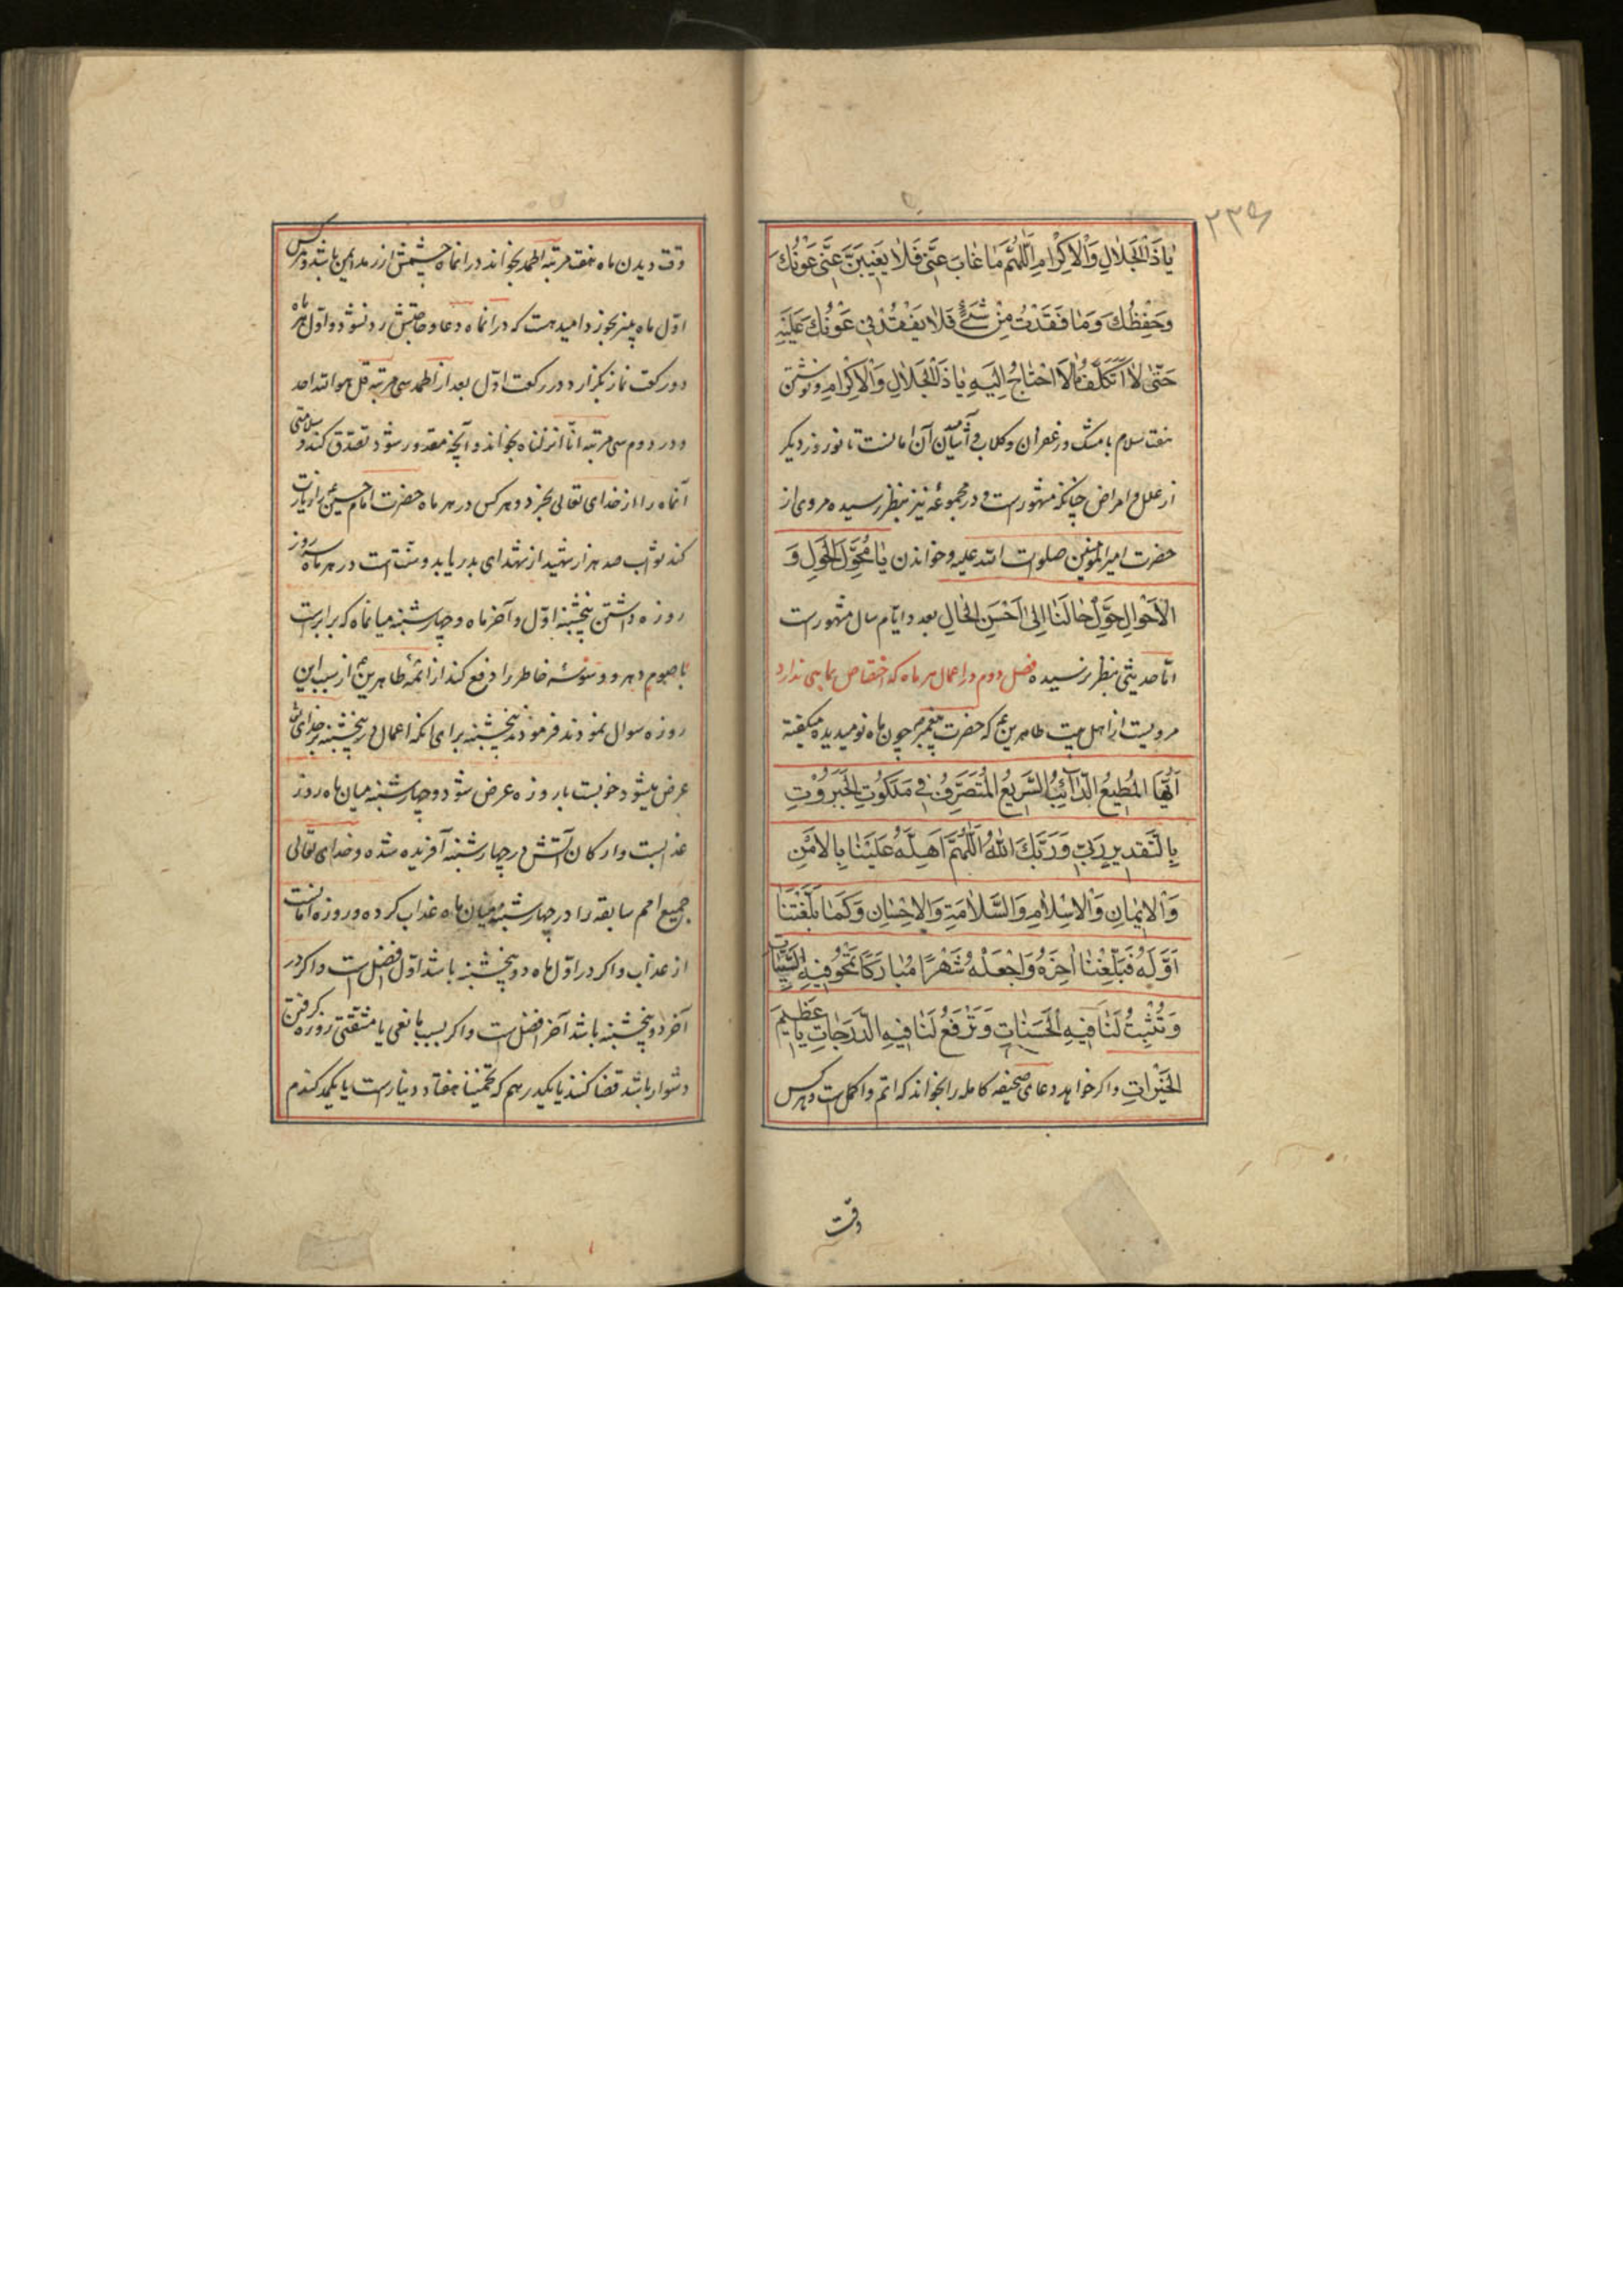 ۲۳۶
يٰا ذَا الْجَلٰالِ وَالْاِكْرٰامِ اَللّٰهُمَّ مٰا غٰابَ عَنّى فَلٰا يَغيبَنَّ عَنّى عَوْنُكَ
وَحِفْظُكَ وَمٰا فَقَدْتُ مِنْ شَىْءٍ فَلٰا يَفْقُدْنى عَوْنُكَ عَلَيْهِ
حَتّٰى لٰا اَتَكَلَّفُ مٰا لٰا اَحْتٰاجُ اِلَيْهِ يٰا ذَا الْجَلٰالِ وَالْاِكْرٰامِ ونوشتن
هفت سلام با مشک و زعفران و کلاب و آشامیدن آن امانست تا نوروز دیگر
از علل و امراض چنانکه مشهورست و در مجموعه نیز بنظر رسیده مروی از
حضرت امیر المؤمنین صلوات الله علیه و خواندن يٰا مُحَوِّلَ الْحَوْلِ وَ
الْاَحْوٰالِ حَوِّلْ حٰالَنٰا اِلٰى اَحْسَنِ الْحٰالِ بعدد ایّام سال مشهورست
امّا حدیثی بنظر نرسیده فصل دوم در اعمال هر ماه که اختصاص بماهی ندارد
مرویست از اهل بیت طاهرین ع که حضرت پیغمبر ص چون ماه نو میدیده میکفته
اَيُّهَا الْمُطيعُ الدّٰائِبُ السَّريعُ الْمُتَصَرِّفُ فى مَلَكُوتِ الْجَبَرُوْتِ
بِالتَّقْديرِ رَبّى وَرَبُّكَ اللّٰهُ اَللّٰهُمَّ اَهِلَّهُ عَلَيْنٰا بِالْاَمْنِ
وَالْايمٰانِ وَالْاِسْلٰامِ وَالسَّلٰامَةِ وَالْاِحْسٰانِ وَكَمٰا بَلَّغْتَنٰا
اَوَّلَهُ فَبَلِّغْنٰا اٰخِرَهُ وَاجْعَلْهُ شَهْرًا مُبٰارَكًا تَمْحُو فيهِ السَّيِّئٰاتِ
وَتُثْبِتُ لَنٰا فيهِ الْحَسَنٰاتِ وَتَرْفَعُ لَنٰا فيهِ الدَّرَجٰاتِ يٰا عَظيمَ
الْخَيْرٰاتِ واکر خواهد دعای صحیفه کامله را بخواند که اتم و اکمل است و هر کس
وقت
وقت دیدن ماه هفت مرتبه الحمد بخواند در انماه چشمش از رمد ایمن باشد و هر کس
اوّل ماه پنیر بخورد امید هست که در انماه دعا و حاجتش رد نشود و اوّل هر ماه
دو رکعت نماز بکزارد در رکعت اوّل بعد از الحمد سی مرتبه قل هو الله احد
و در دوم سی مرتبه انّا انزلناه بخواند و آنچه مقدور شود تصدّق کند و سلامتی
آنماه را از خدای تعالی بخرد و هر کس در هر ماه حضرت امام حسین ع را زیارت
کند ثواب صد هزار شهید از شهدای بدر یابد و سنّت است در هر ماه سه روز
روزه داشتن پنجشنبه اوّل و آخر ماه و چهارشنبه میانماه که برابرست
با صوم دهر و وسوسهٔ خاطر را دفع کند از ائمّهٔ طاهرین ع از سبب این
روزه سوال نمودند فرمودند پنجشنبه برای آنکه اعمال در پنجشنبه بر خدای تعالی
عرض میشود خوبست با روزه عرض شود و چهارشنبه میان ماه روز
عذابست و ارکان آتش در چهارشنبه آفریده شده و خدای تعالی
جمیع امم سابقه را در چهارشنبه میان ماه عذاب کرده و روزه امانست
از عذاب و اکر در اوّل ماه دو پنجشنبه باشد اوّل افضل است و اکر در
آخر دو پنجشنبه باشد آخر افضل است و اکر بسبب مانعی یا مشقّتی روزه کرفتن
دشوار باشد قضا کنند یا بیکدرهم که تخمیناً هفتاد دینارست یا بیکمد کندم